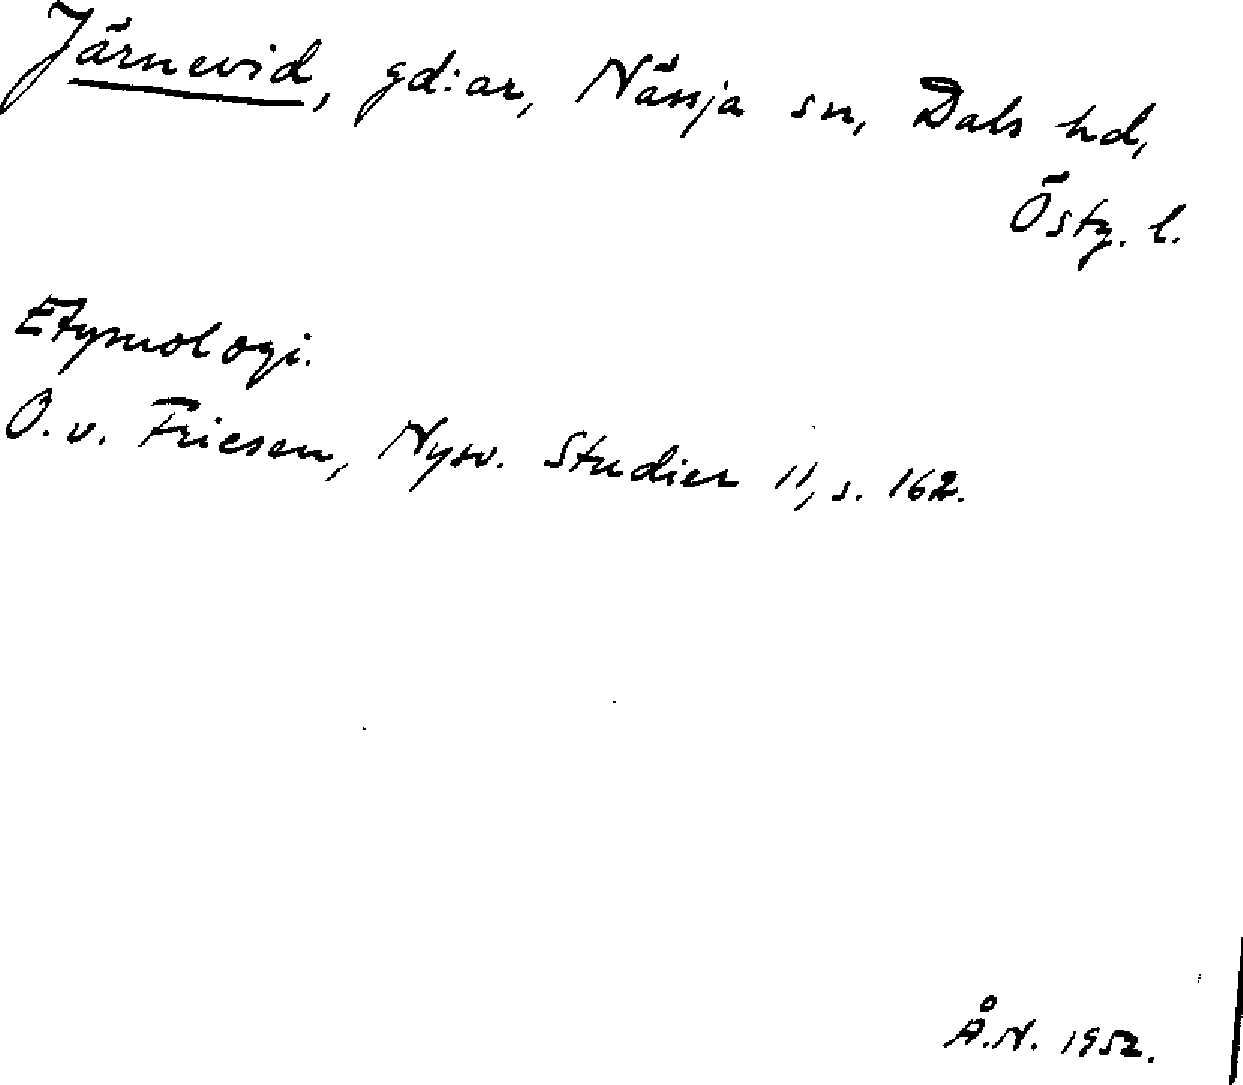 Järnevid, gd:ar, Nässja sn, Dals hd,
Östg. l.
Etymologi.
O. v. Friesen, Nysv. Studier 11, s. 162.
Å.N. 1952.